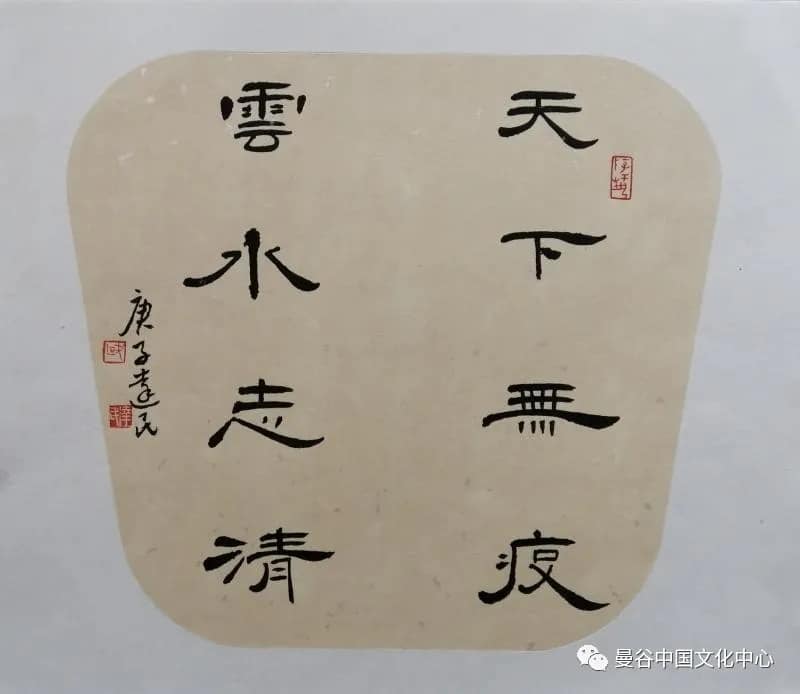 天下無疫
雲水志清
庚子達民
曼谷中国文化中心